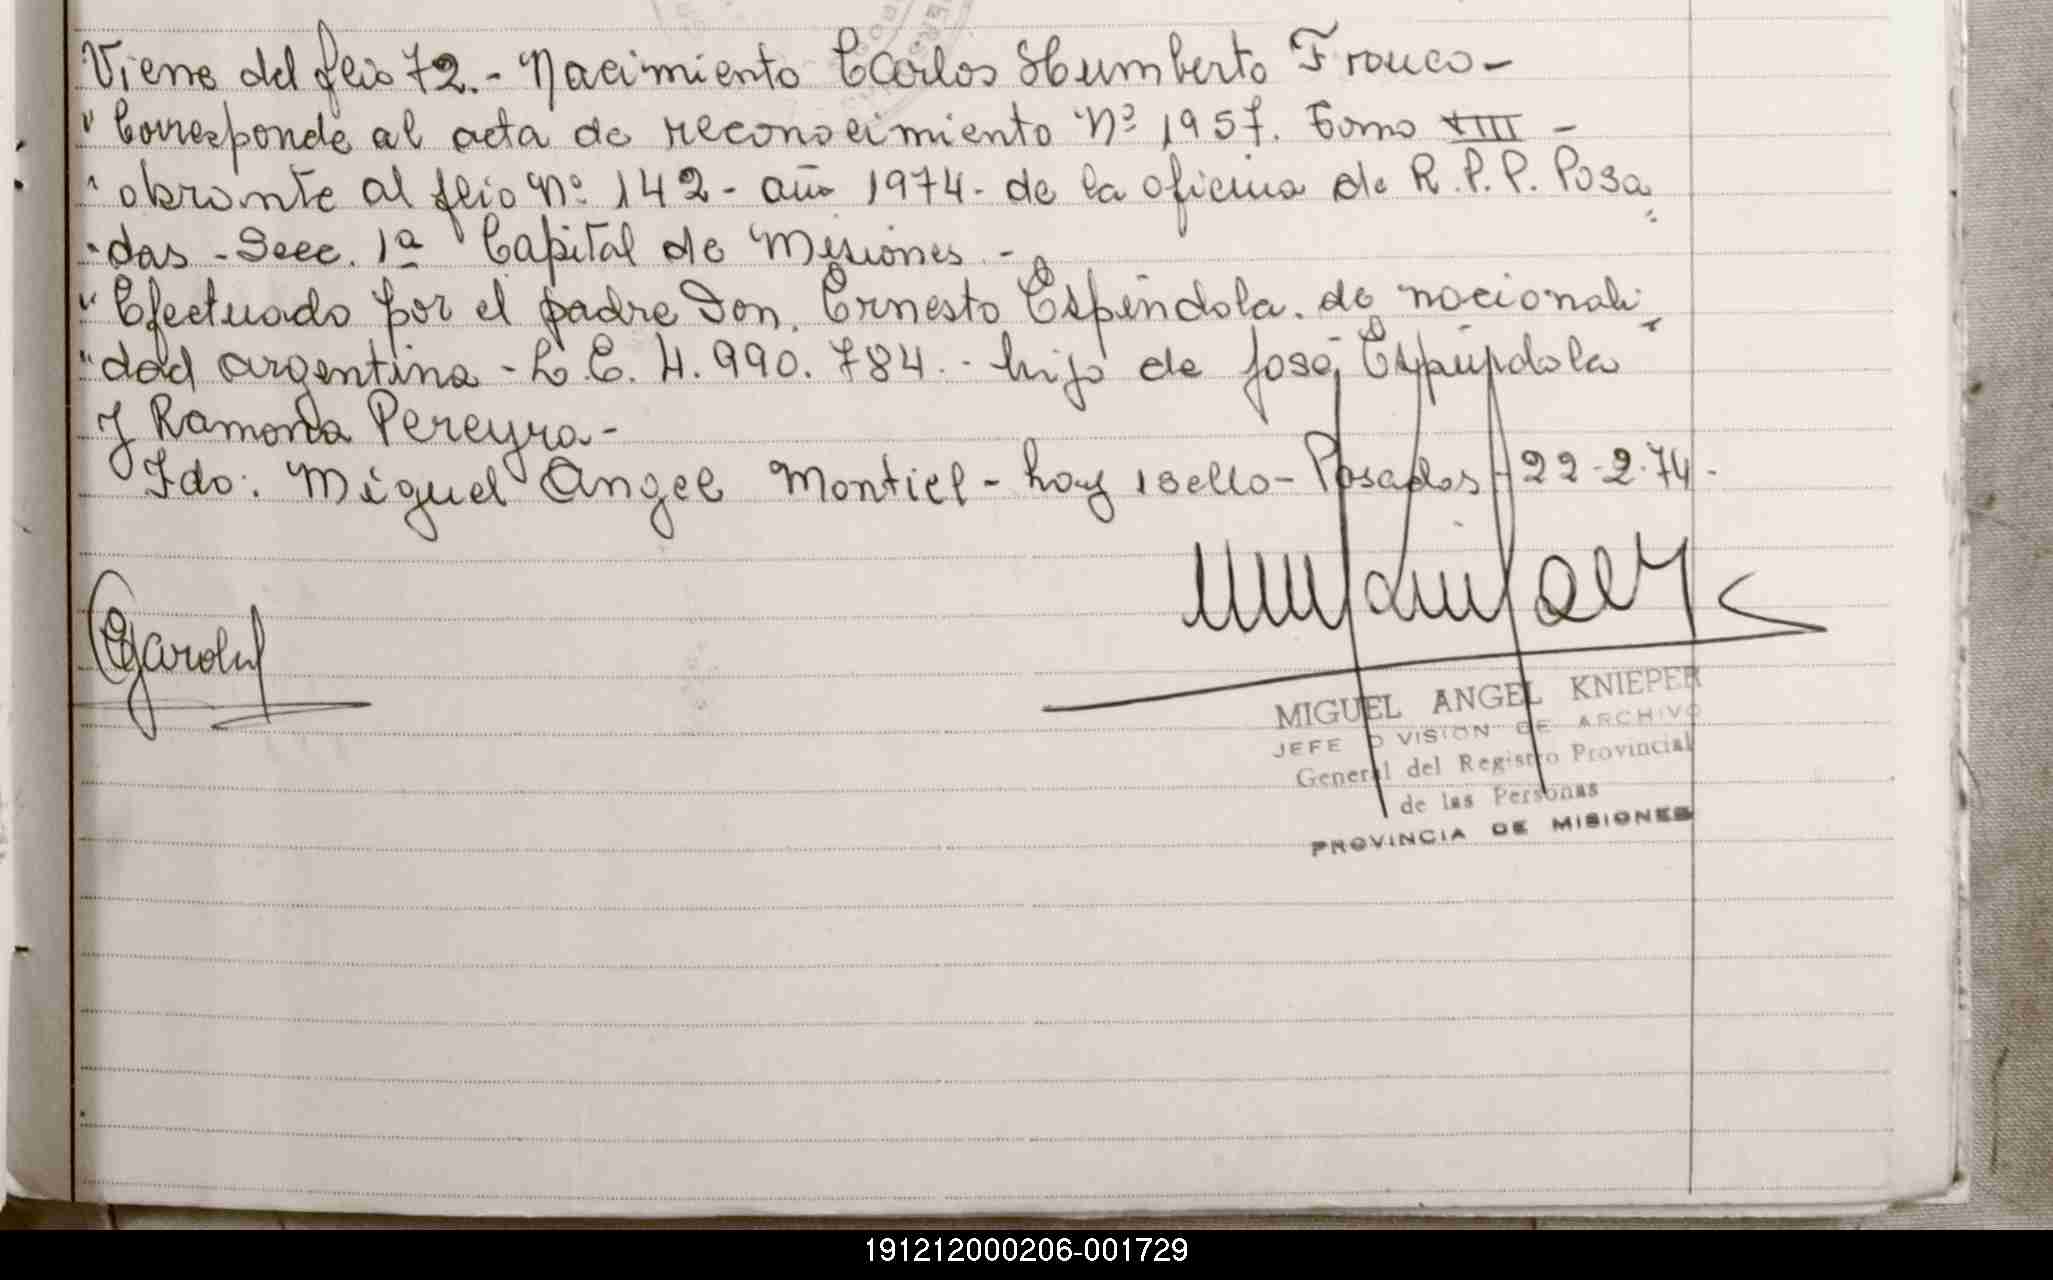 Viene del flio 72.- Nacimiento Carlos Humberto Franco-
" Corresponde al acta de reconocimiento Nº 1957. Tomo VIII -
" obrante al flio Nº 142- año 1974- de la oficina de R.P.P. Posa
" das - Secc. 1ª Capital de Misiones.-
" Efectuado por el padre Don. Ernesto Espíndola. de nacionali
" dad argentina - L.E. 4.990.784.- hijo de José Espíndola
y Ramona Pereyra-
Fdo: Miguel Angel Montiel - hay 1 sello - Posadas - 22-2-74-
MIGUEL ANGEL KNIEPER
JEFE DIVISION DE ARCHIVO
General del Registro Provincial
de las Personas
PROVINCIA DE MISIONES
191212000206-001729